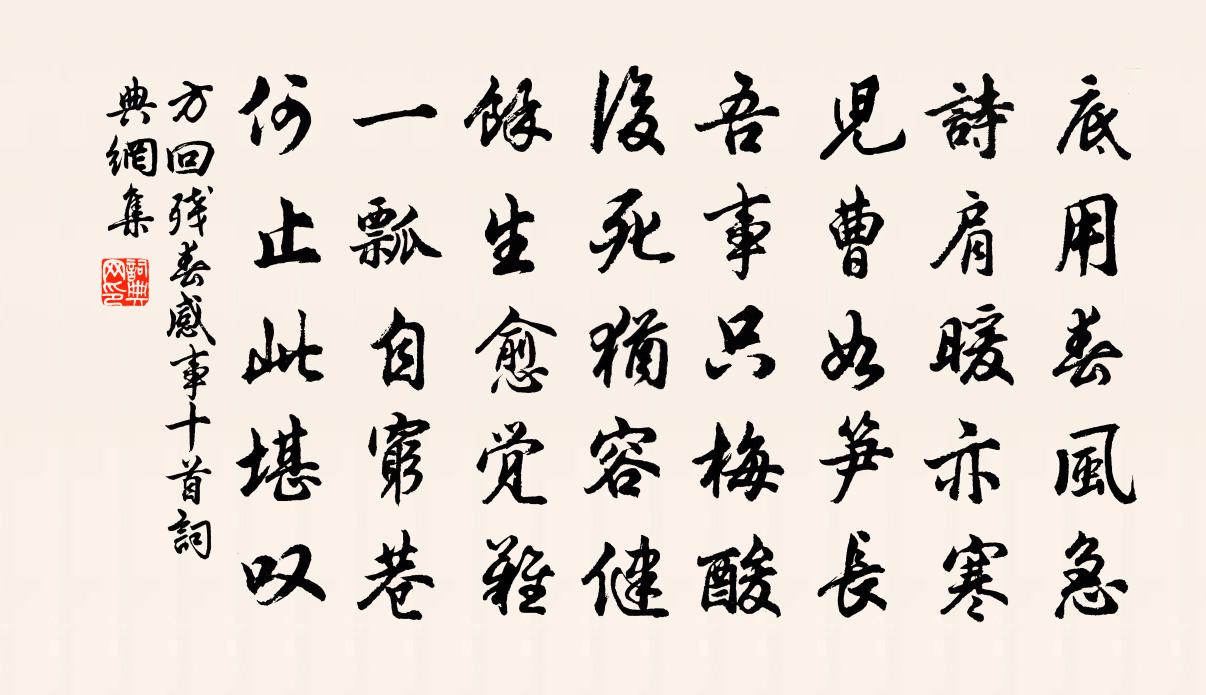 底用春風急
詩肩暖亦寒
児曹如笋長
吾事只梅酸
後死猶容健
餘生愈觉難
一瓢自窮巷
何止此堪叹
方回残春感事十首詞
典網集
詞典
网印